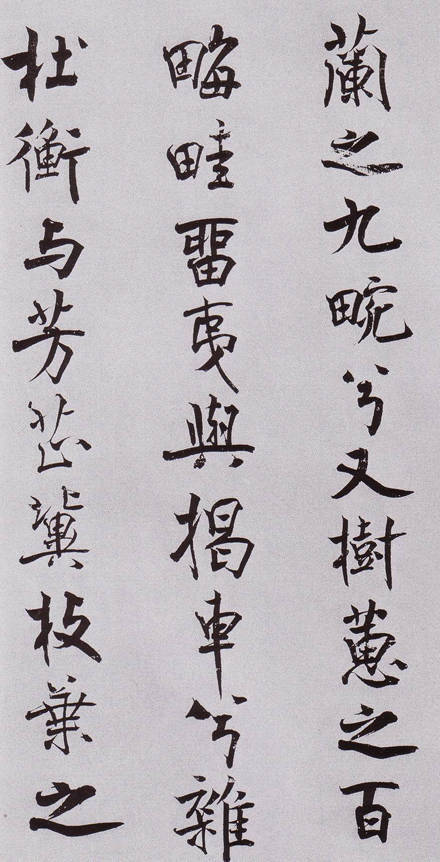 蘭之九畹兮又樹蕙之百
畮畦畱夷與揭車兮雜
杜衡与芳芷兾枝葉之